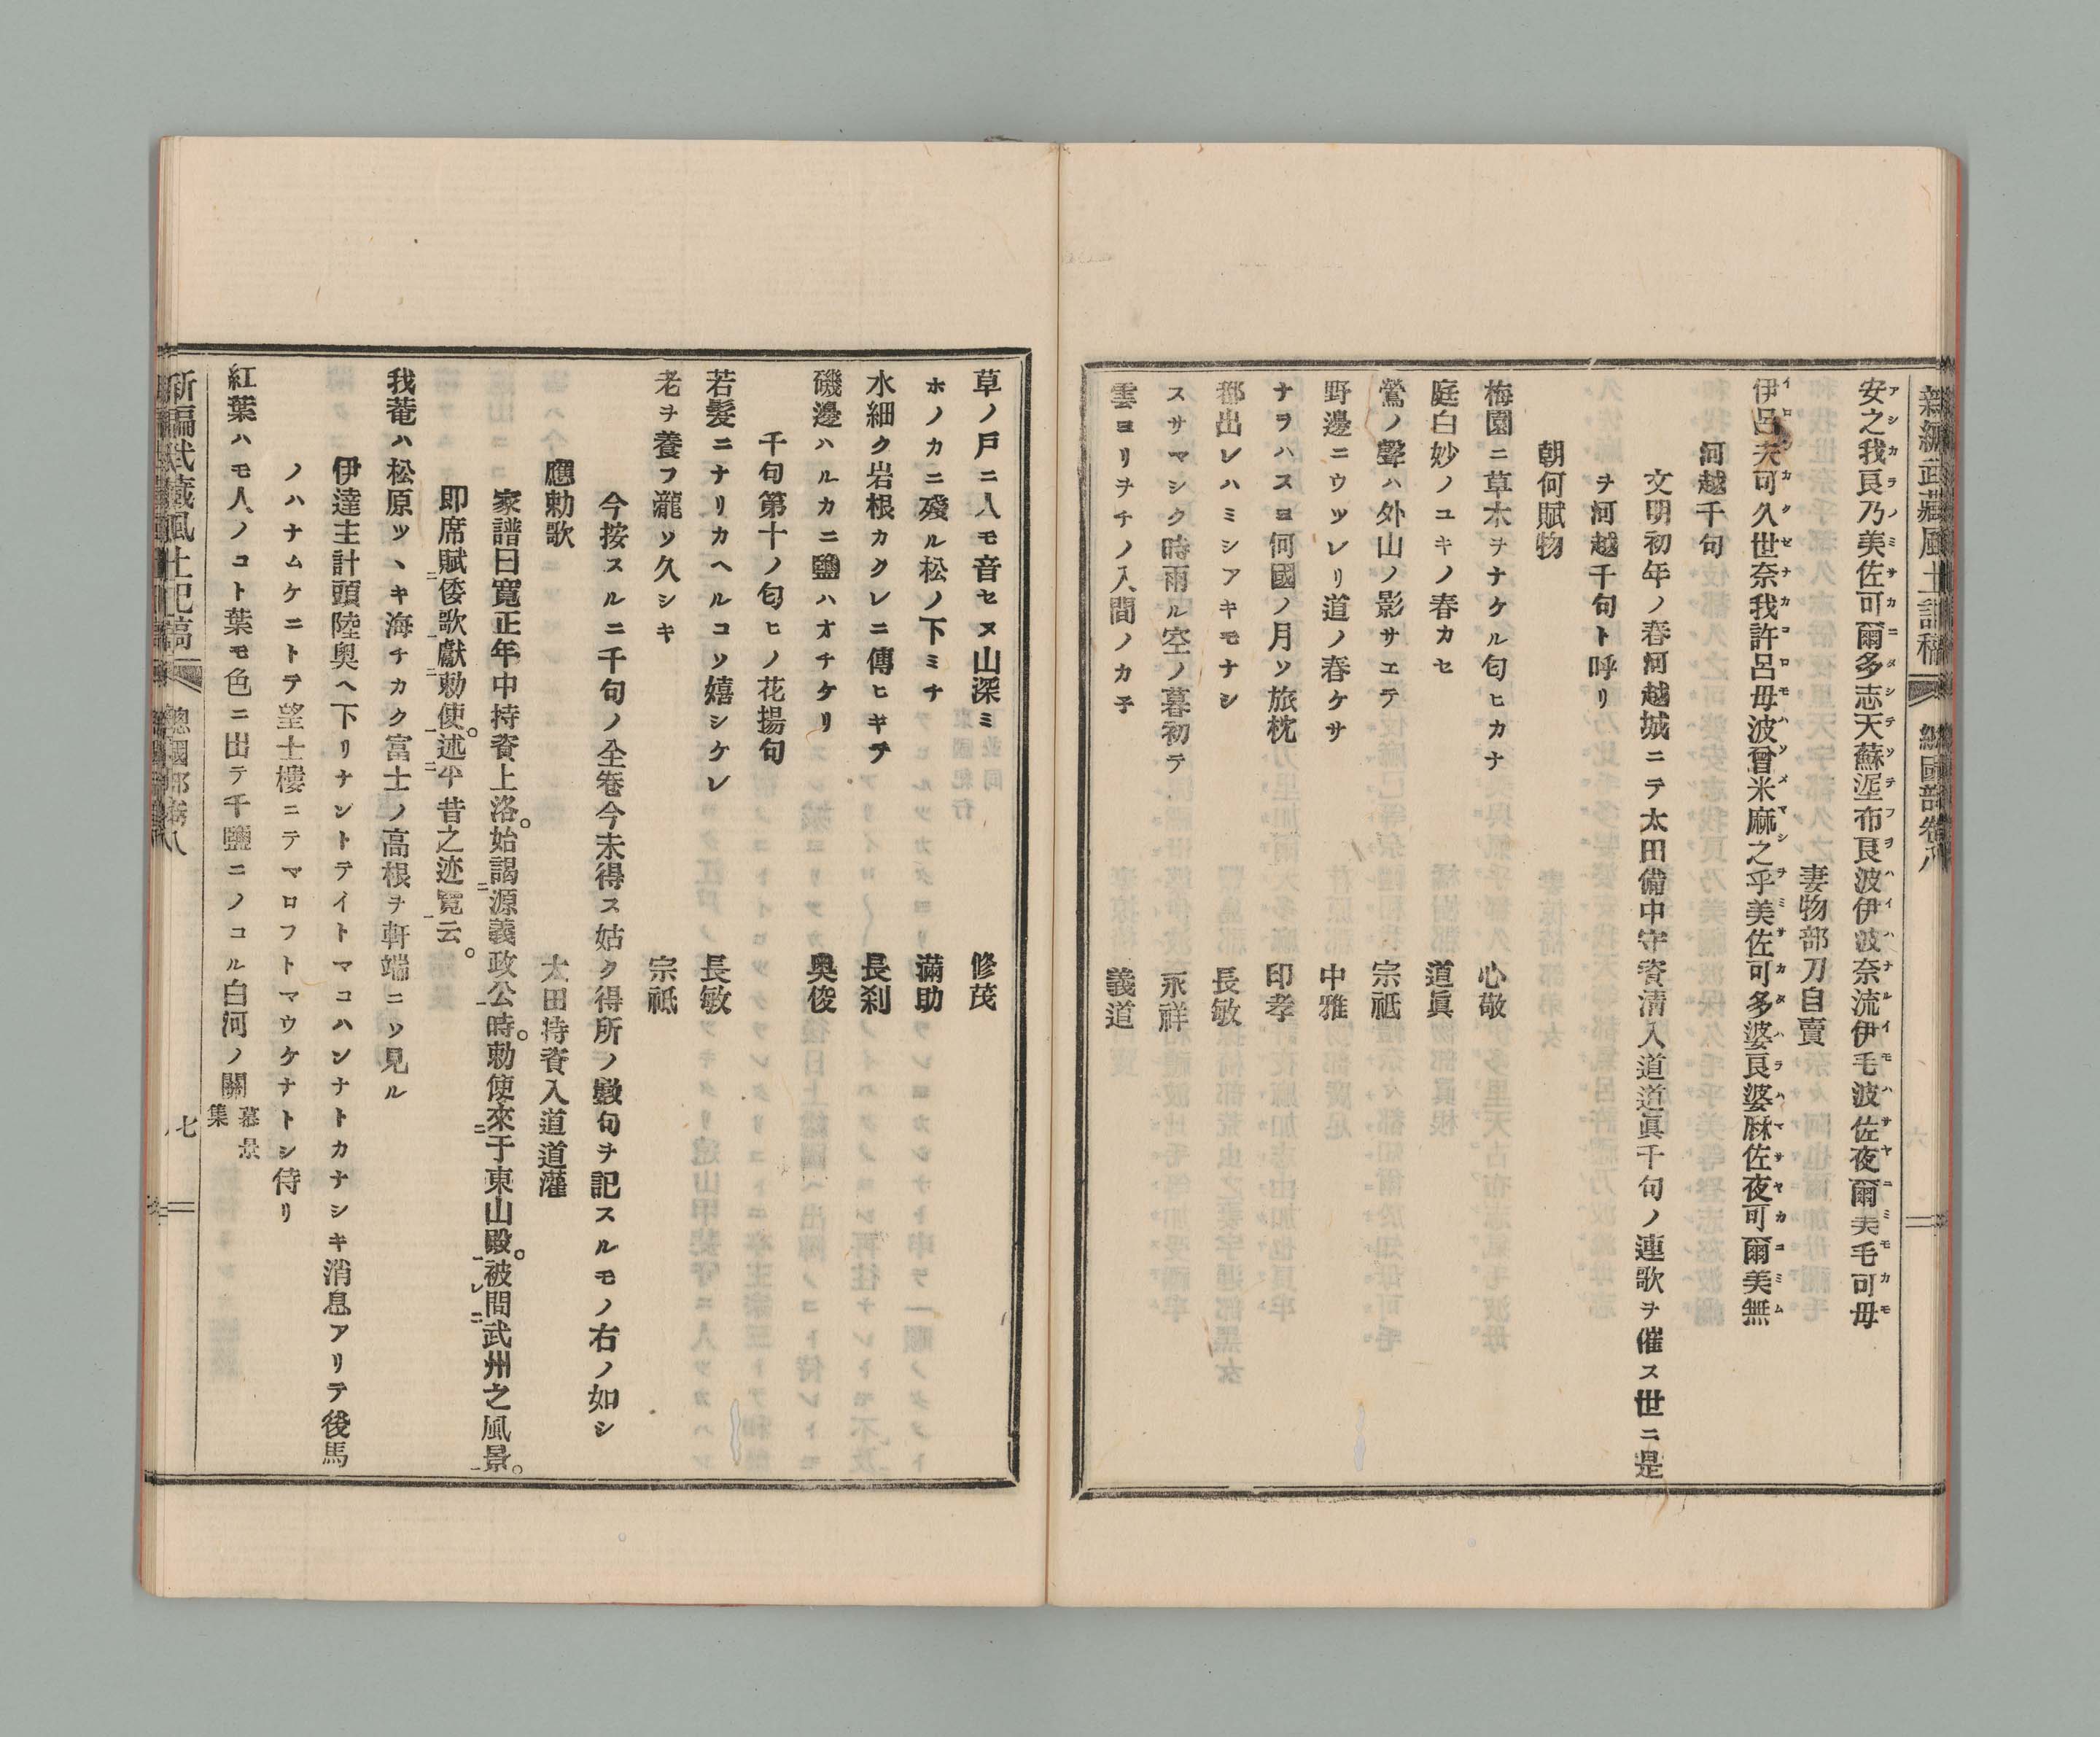 新編武藏風土記稿 總國部卷八
安之我良乃美佐可爾多志天蘇埿布良波伊波奈流伊毛波佐夜爾美毛可母
妻物部刀自賣
伊呂夫可久世奈我許呂母波曾米麻之乎美佐可多婆良婆麻佐夜可爾美無
河越千句
文明初年ノ春河越城ニテ太田備中守資淸入道道眞千句ノ連歌ヲ催ス世ニ是
ヲ河越千句ト呼リ
朝何賦物
梅園ニ草木ヲナケル匂ヒカナ 心敬
庭白妙ノユキノ春カセ 道眞
鶯ノ聲ハ外山ノ影サエテ 宗祇
野邊ニウツレリ道ノ春ケサ 中雅
ナラハスヨ何國ノ月ソ旅枕 印孝
都出レハミシアキモナシ 長敏
スサマシク時雨ル空ノ暮初テ 永祥
雲ヨリヲチノ入間ノカ子 義道
草ノ戸ニ人モ音セヌ山深ミ 修茂
ホノカニ殘ル松ノ下ミチ 滿助
水細ク岩根カクレニ傳ヒキテ 長剎
磯邊ハルカニ鹽ハオチケリ 奧俊
千句第十ノ匂ヒノ花揚句
若髮ニナリカヘルコソ嬉シケレ 長敏
老ヲ養フ瀧ソ久シキ 宗祇
今按スルニ千句ノ全卷今未得ス姑ク得所ノ數句ヲ記スルモノ右ノ如シ
應勅歌 太田持資入道道灌
家譜曰寬正年中持資上洛。始謁源義政公時。勅使來于東山殿。被問武州之風景。
即席賦倭歌獻勅使。述平昔之迹寬云。
我菴ハ松原ツヽキ海チカク富士ノ高根ヲ軒端ニソ見ル
伊達主計頭陸奥ヘ下リナントテイトマコハンナトカナシキ消息アリテ後馬
ノハナムケニトテ望士樓ニテマロフトマウケナトシ侍リ
紅葉ハモ人ノコト葉モ色ニ出テ千鹽ニノコル白河ノ關 慕景集
新編武藏風土記稿 總國部卷八 七